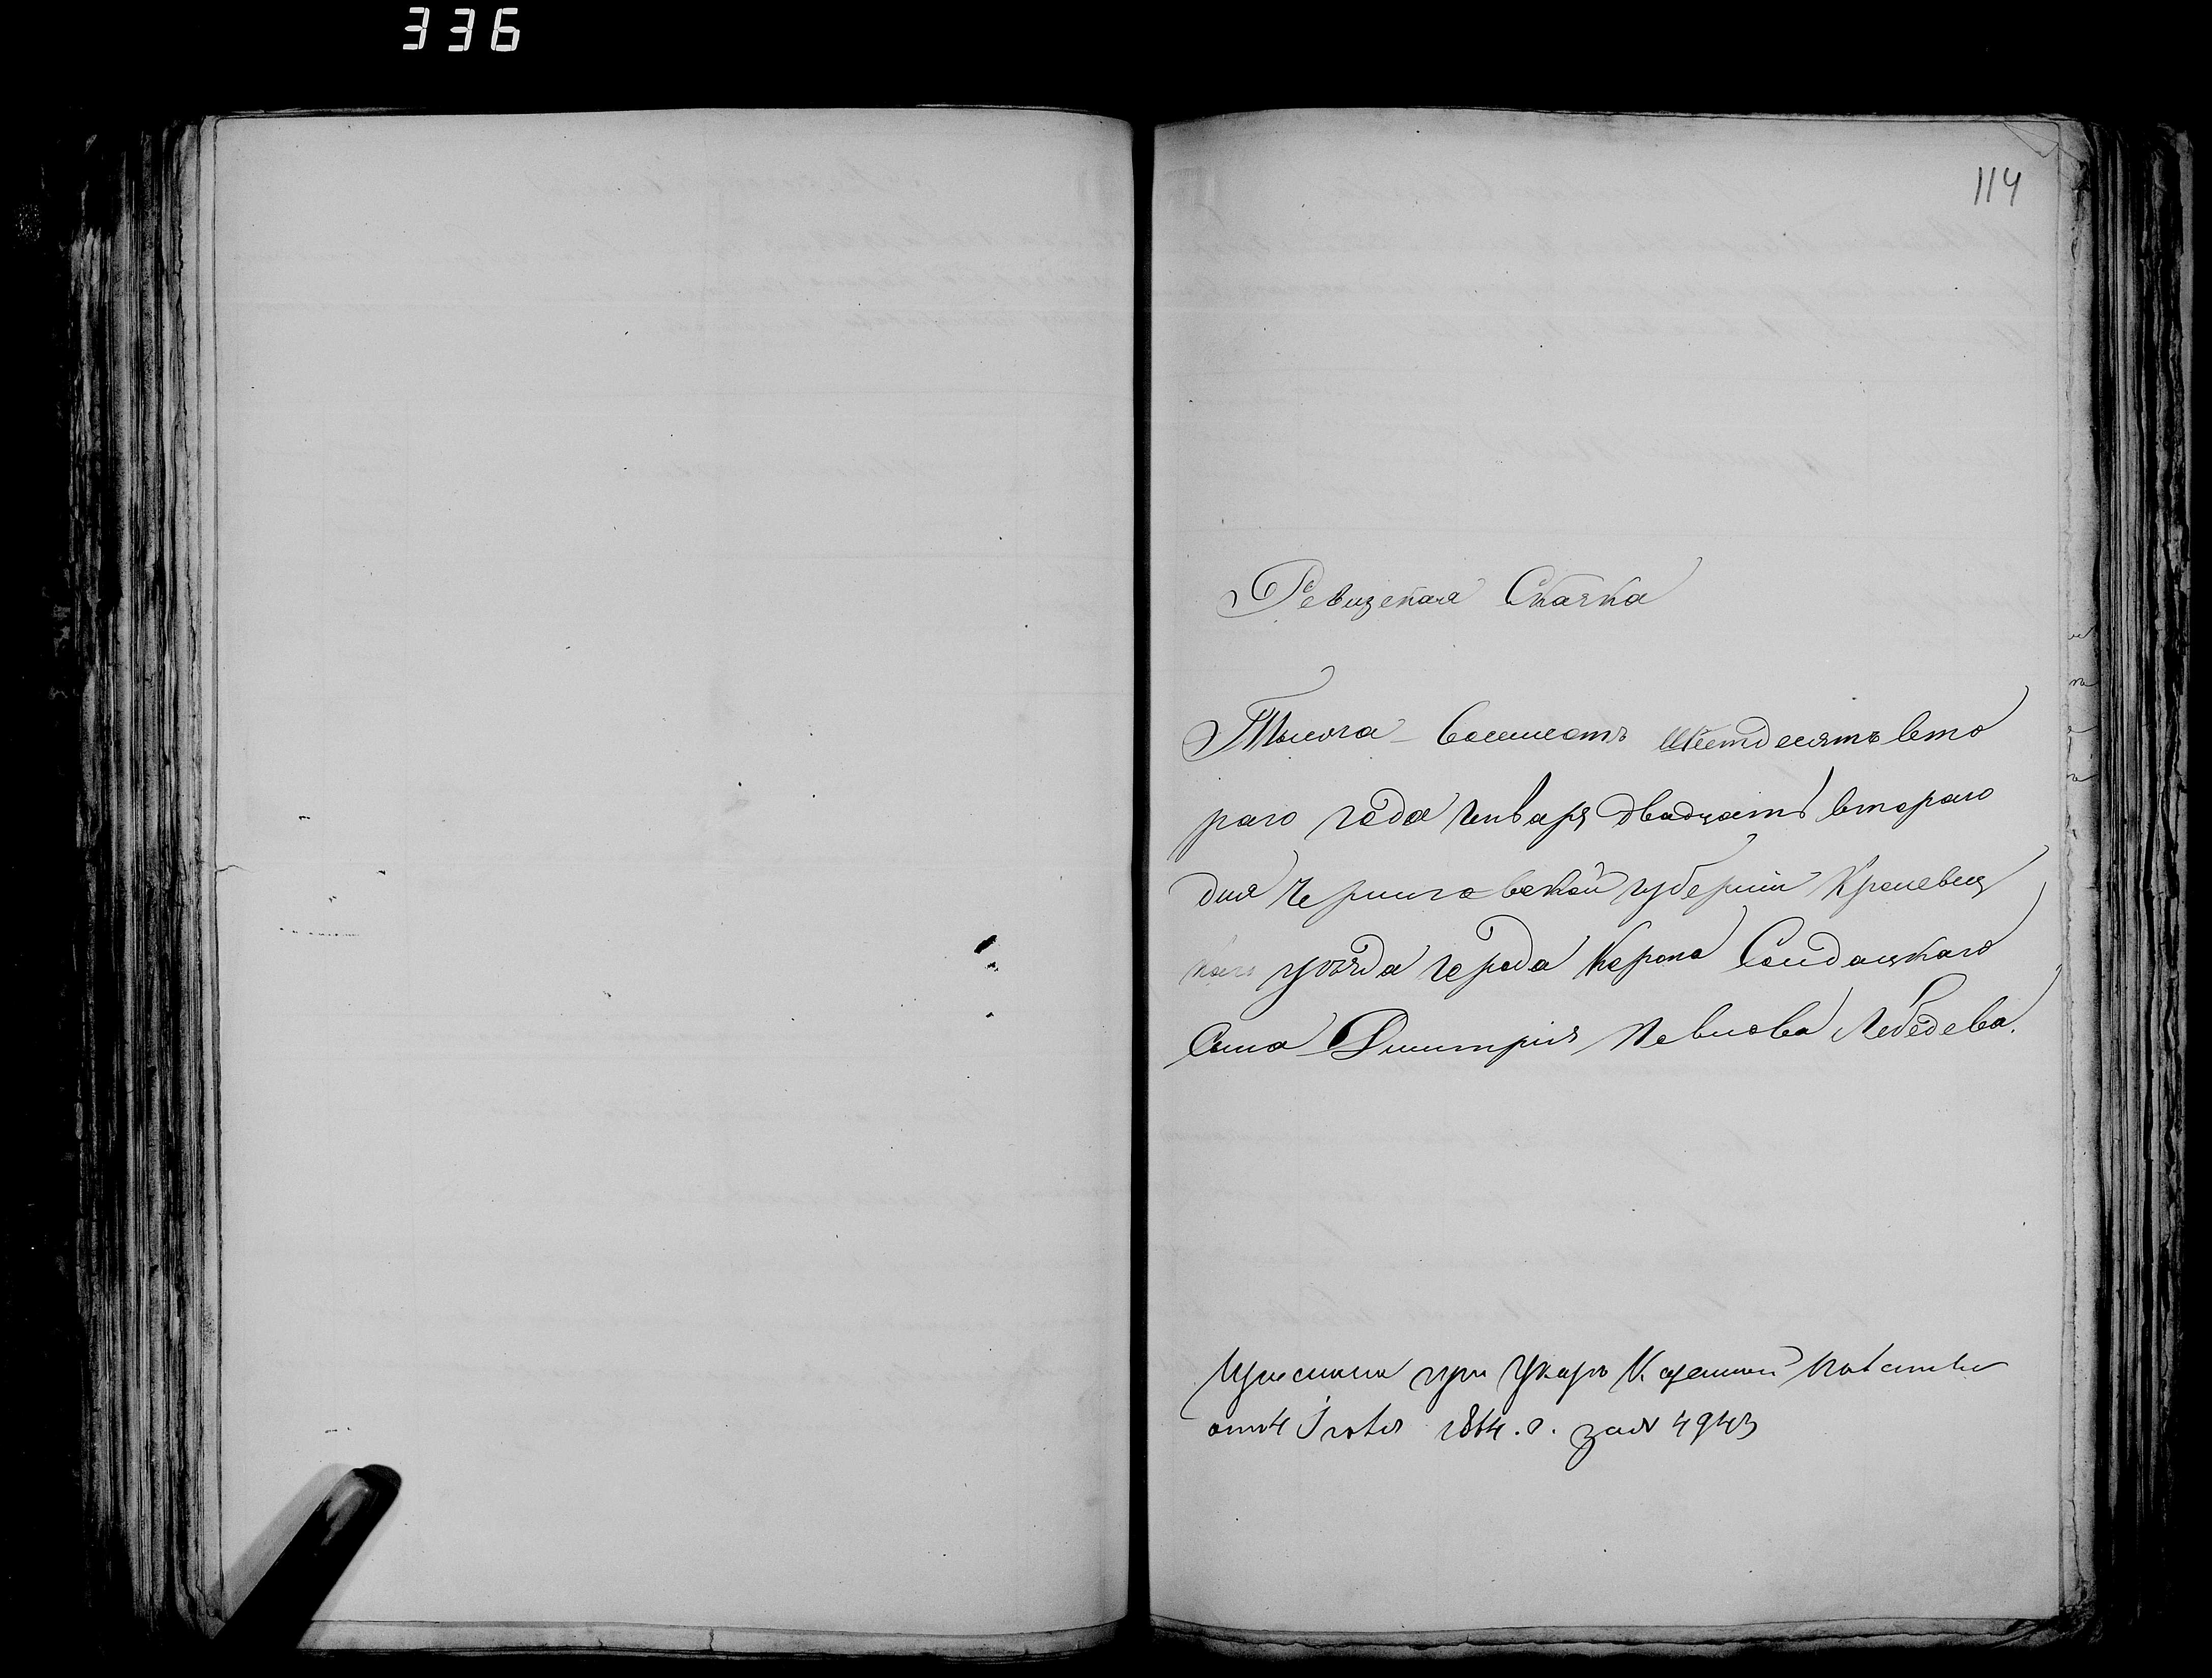 336
114
Ревизская Сказка
Тысяча восемсотъ шестдесятъ вто
раго года Генваря двадцать втораго
дня Черниговской губернии Кролевец
каго уѣзда города Коропа Солдацкаго
Сына Димитрія Павлова Лебедева.
при Указѣ Казенной Палаты
отъ 4 1864. г. за № 4943